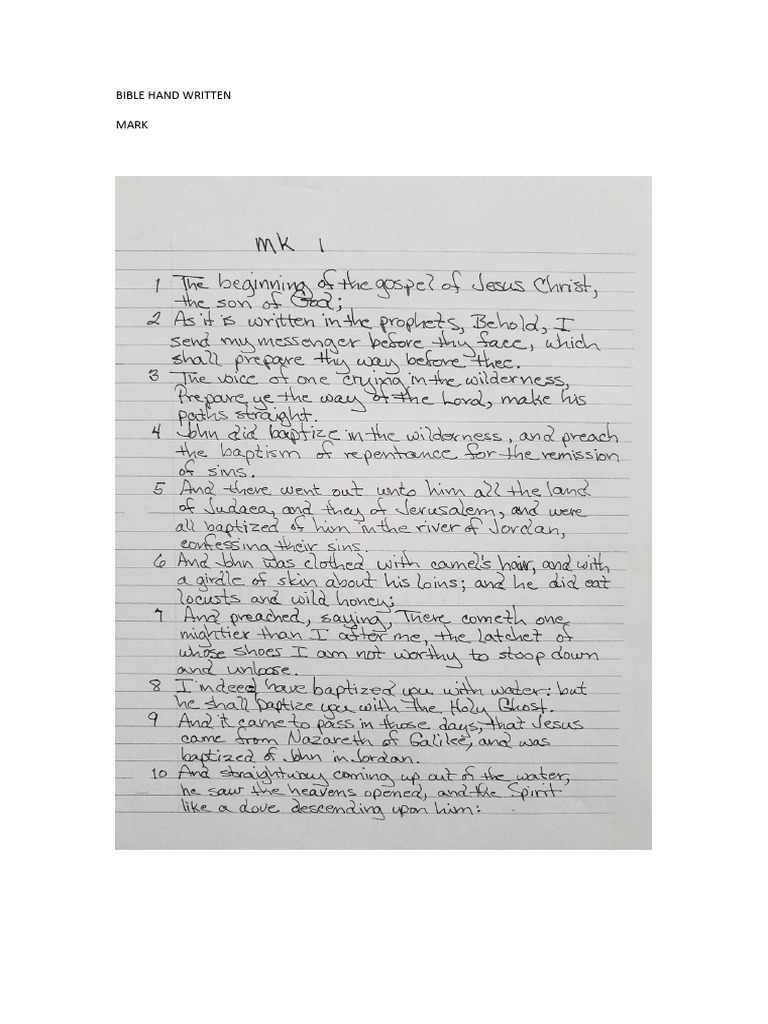 BIBLE HAND WRITTEN
MARK
mk 1
1 The beginning of the gospel of Jesus Christ,
the son of God;
2 As it is written in the prophets, Behold, I
send my messenger before thy face, which
shall prepare thy way before thee.
3 The voice of one crying in the wilderness,
Prepare ye the way of the Lord, make his
paths straight.
4 John did baptize in the wilderness, and preach
the baptism of repentance for the remission
of sins.
5 And there went out unto him all the land
of Judaea, and they of Jerusalem, and were
all baptized of him in the river of Jordan,
confessing their sins.
6 And John was clothed with camel's hair, and with
a girdle of skin about his loins; and he did eat
locusts and wild honey;
7 And preached, saying, There cometh one
mightier than I after me, the latchet of
whose shoes I am not worthy to stoop down
and unloose.
8 I indeed have baptized you with water: but
he shall baptize you with the Holy Ghost.
9 And it came to pass in those days, that Jesus
came from Nazareth of Galilee, and was
baptized of John in Jordan.
10 And straightway coming up out of the water,
he saw the heavens opened, and the Spirit
like a dove descending upon him: